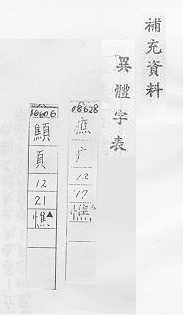 補充資料
異體字表
08628
癄
疒
12
17
憔
顦
頁
12
21
憔▲